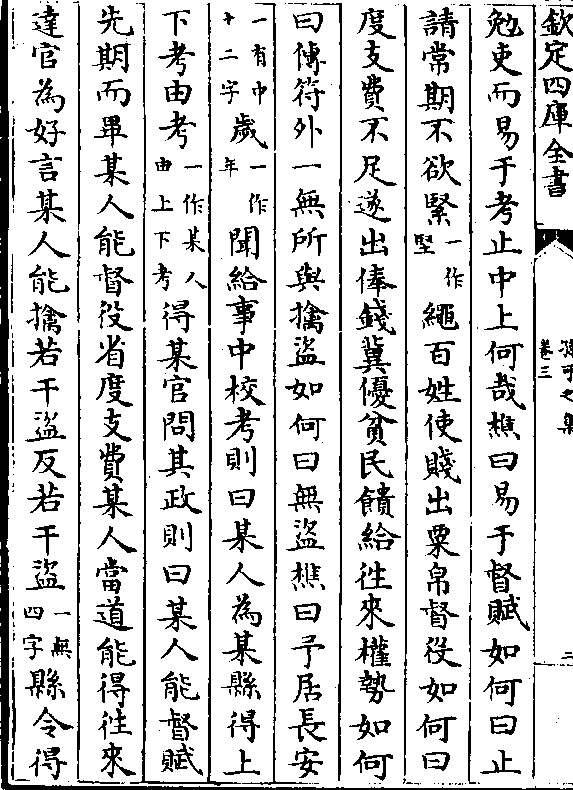 欽定四庫全書
孫可之集
卷三
三
勉吏而易于考止中上何哉樵曰易于督賦如何曰止
請常期不欲緊一作堅繩百姓使賤出粟帛督役如何曰
度支費不足遂出俸錢冀優貧民饋給往來權勢如何
曰傳符外一無所與擒盜如何曰無盜樵曰予居長安
一有中十二字歲一作年聞給事中校考則曰某人為某縣得上
下考由考一作某人由上下考得某官問其政則曰某人能督賦
先期而畢某人能督役省度支費某人當道能得往來
達官為好言某人能擒若干盜反若干盜一無四字縣令得